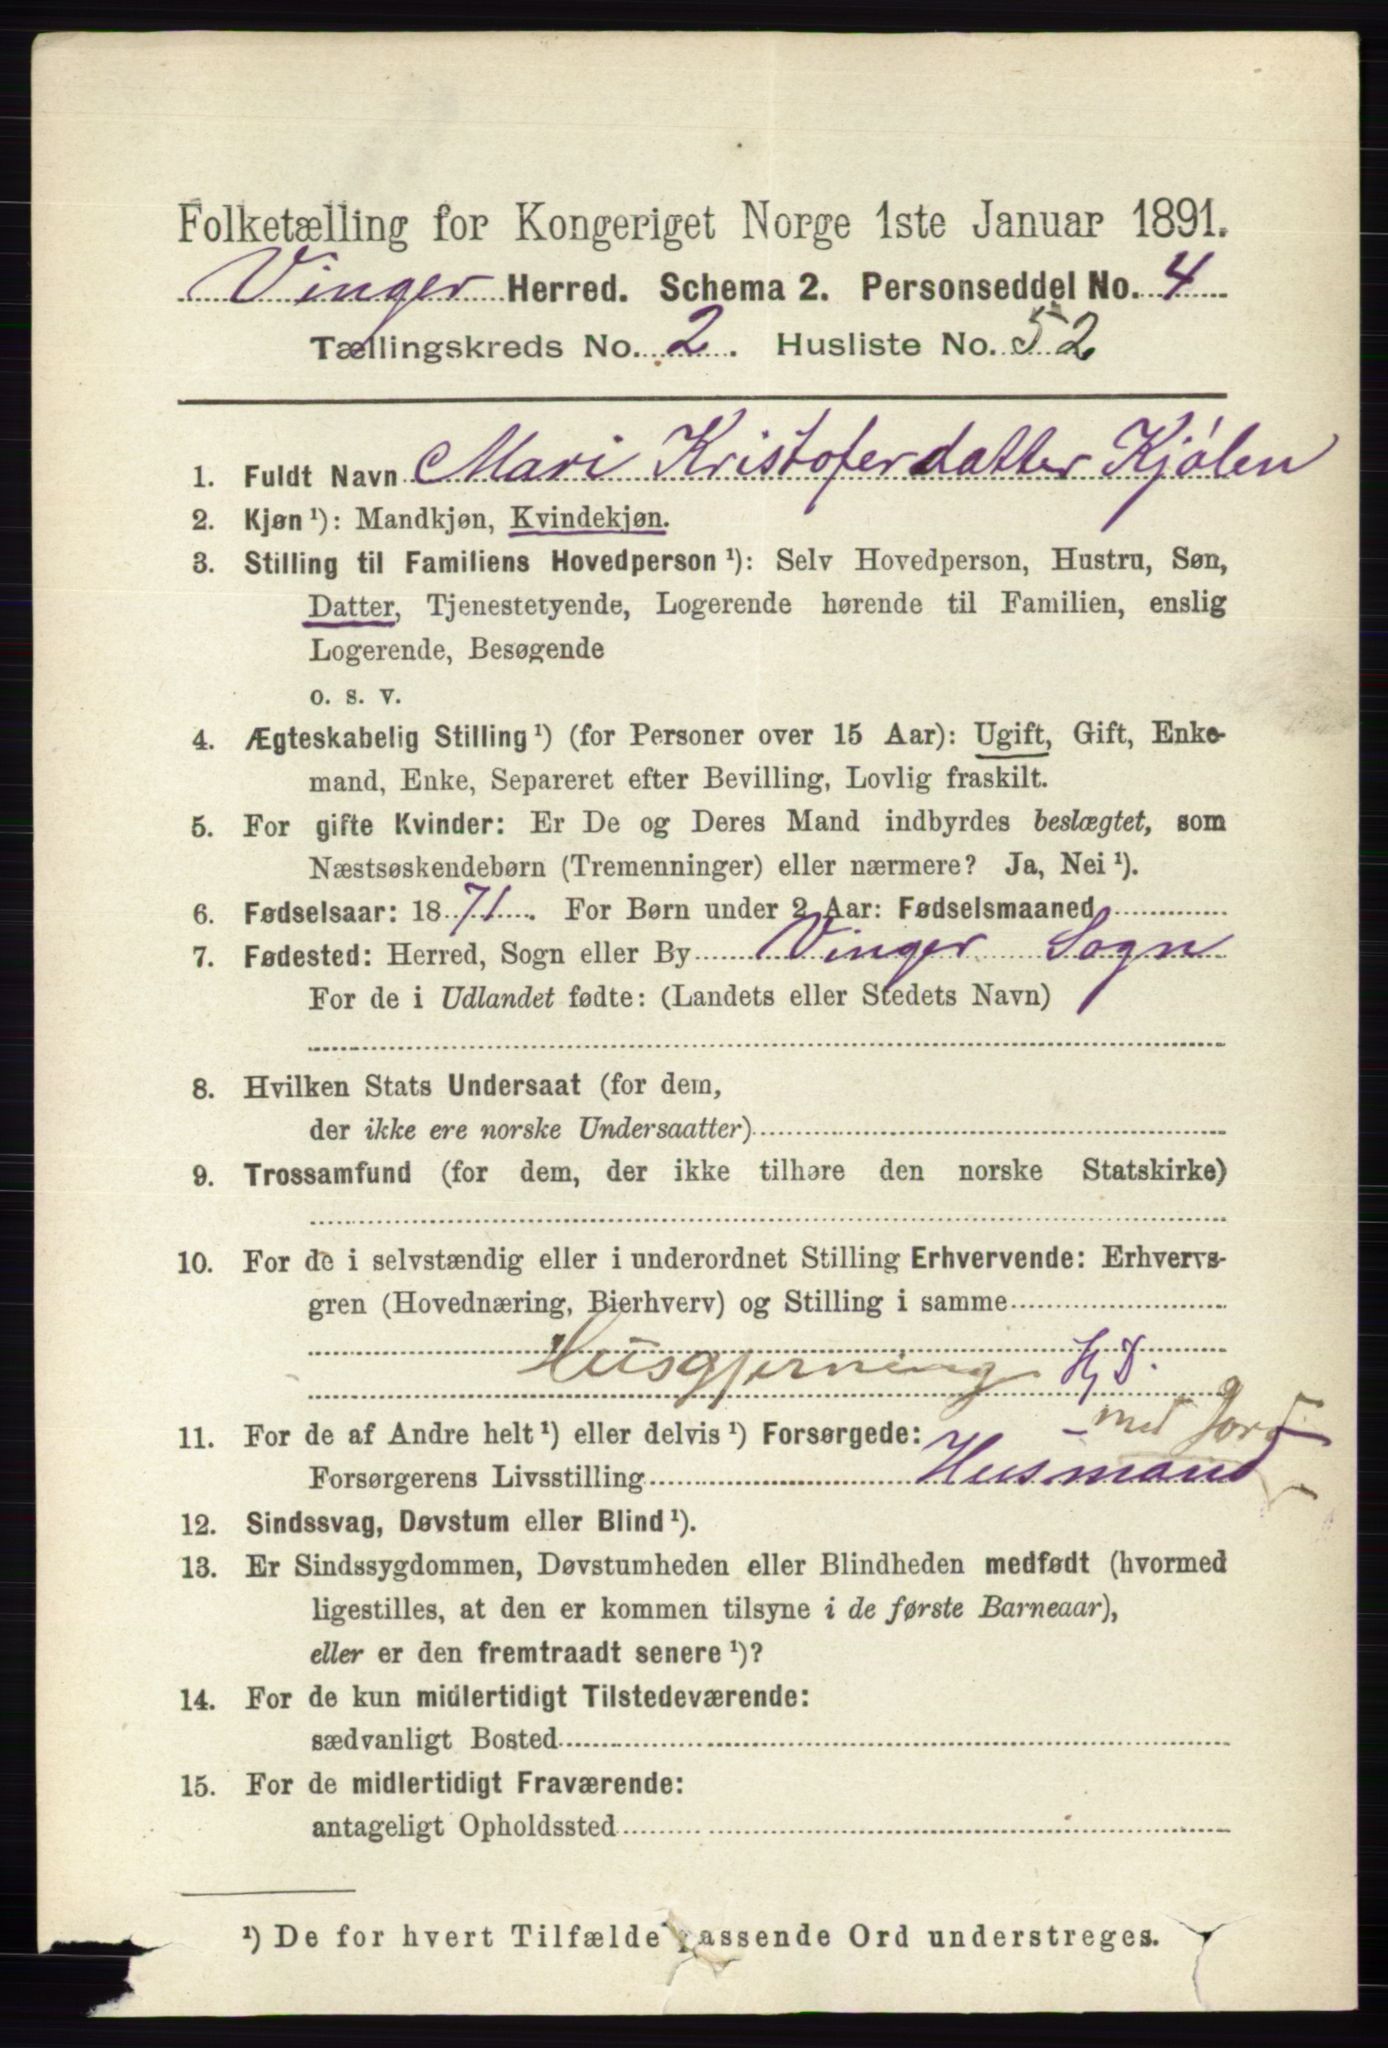 Folketælling for Kongeriget Norge 1ste Januar 1891.
Vinger Herred. Schema 2. Personseddel No. 4
Tællingskreds No. 2. Husliste No. 52
1. Fuldt Navn Mari Kristoferdatter Kjölen
2. Kjøn ¹): Mandkjøn, Kvindekjøn.
3. Stilling til Familiens Hovedperson ¹): Selv Hovedperson, Hustru, Søn,
Datter, Tjenestetyende, Logerende hørende til Familien, enslig
Logerende, Besøgende
o. s. v.
4. Ægteskabelig Stilling ¹) (for Personer over 15 Aar): Ugift, Gift, Enke-
mand, Enke, Separeret efter Bevilling, Lovlig fraskilt.
5. For gifte Kvinder: Er De og Deres Mand indbyrdes beslægtet, som
Næstsøskendebørn (Tremenninger) eller nærmere? Ja, Nei ¹).
6. Fødselsaar: 1871. For Børn under 2 Aar: Fødselsmaaned
7. Fødested: Herred, Sogn eller By Vinger Sogn
For de i Udlandet fødte: (Landets eller Stedets Navn)
8. Hvilken Stats Undersaat (for dem,
der ikke ere norske Undersaatter)
9. Trossamfund (for dem, der ikke tilhøre den norske Statskirke)
10. For de i selvstændig eller i underordnet Stilling Erhvervende: Erhvervs-
gren (Hovednæring, Bierhverv) og Stilling i samme
Husgjerning
med Jord
11. For de af Andre helt ¹) eller delvis ¹) Forsørgede:
Forsørgerens Livsstilling Husmand
12. Sindssvag, Døvstum eller Blind ¹).
13. Er Sindssygdommen, Døvstumheden eller Blindheden medfødt (hvormed
ligestilles, at den er kommen tilsyne i de første Barneaar),
eller er den fremtraadt senere ¹)?
14. For de kun midlertidigt Tilstedeværende:
sædvanligt Bosted
15. For de midlertidigt Fraværende:
antageligt Opholdssted
¹) De for hvert Tilfælde passende Ord understreges.